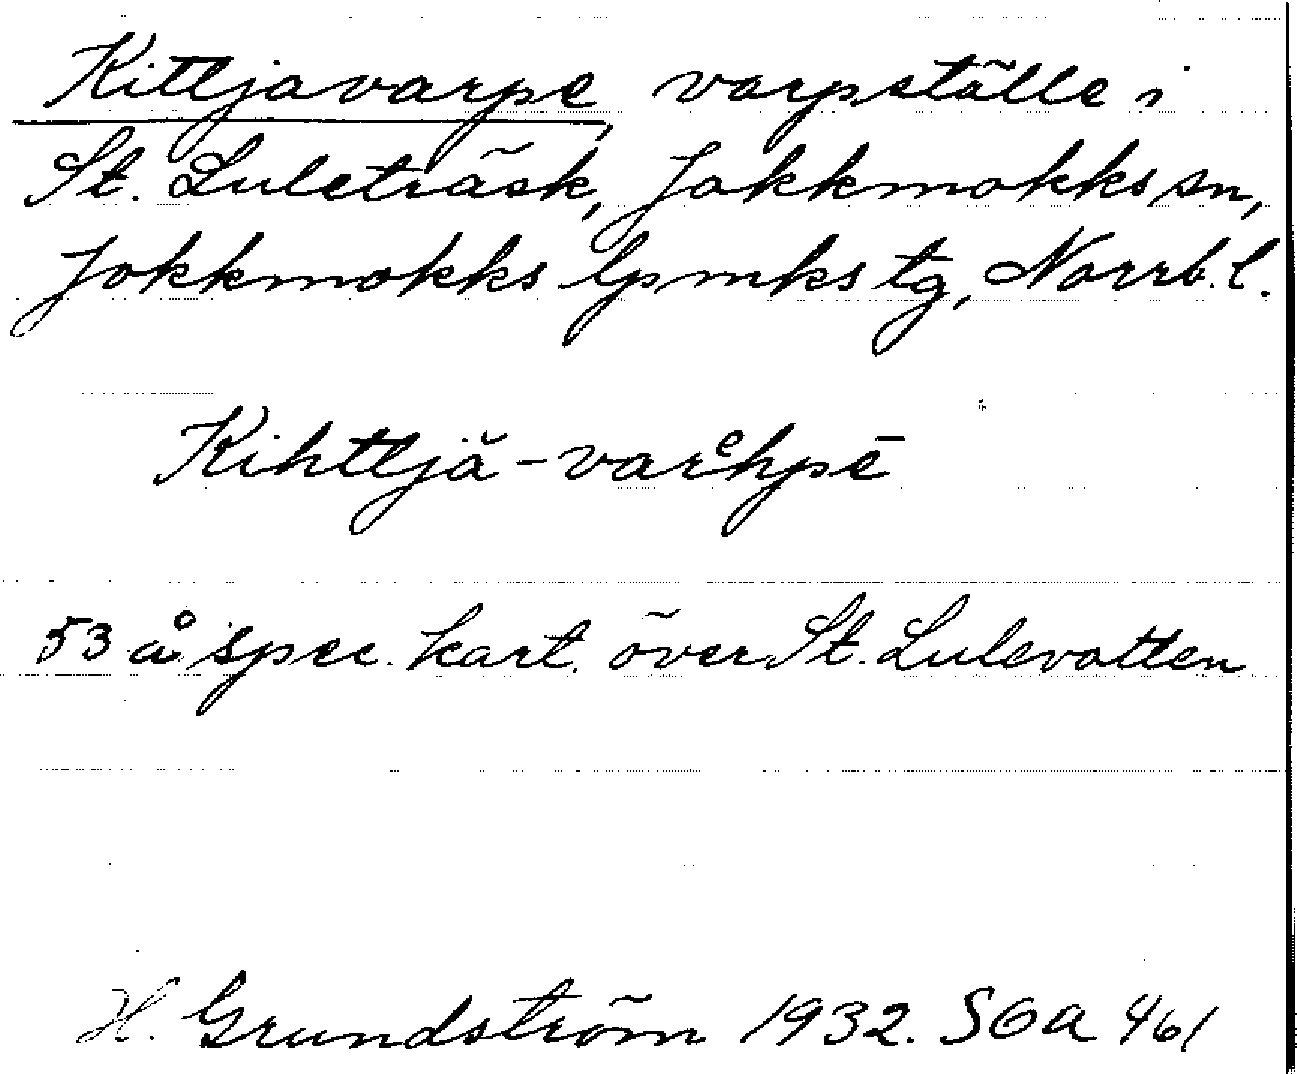 Kittjavarpe, varpställe i
St. Luleträsk, Jokkmokks sn,
Jokkmokks lpmks tg, Norrb. l.
Kihttjă-varᵉhpē
53 å spec. kart. över St. Lulevatten
H. Grundström 1932. SOA 461